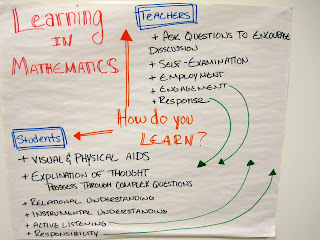 Learning
in
Mathematics
Teachers
+ Ask Questions to Encourage
Disscussion
+ Self-Examination
+ Employment
+ Engagement
+ Response
How do you
Learn?
Students
+ Visual & Physical Aids
+ Explination of Thought
Process Through Complex Questions
+ Relational Understanding
+ Instrumental Understanding
+ Active Listening
+ Responsibility